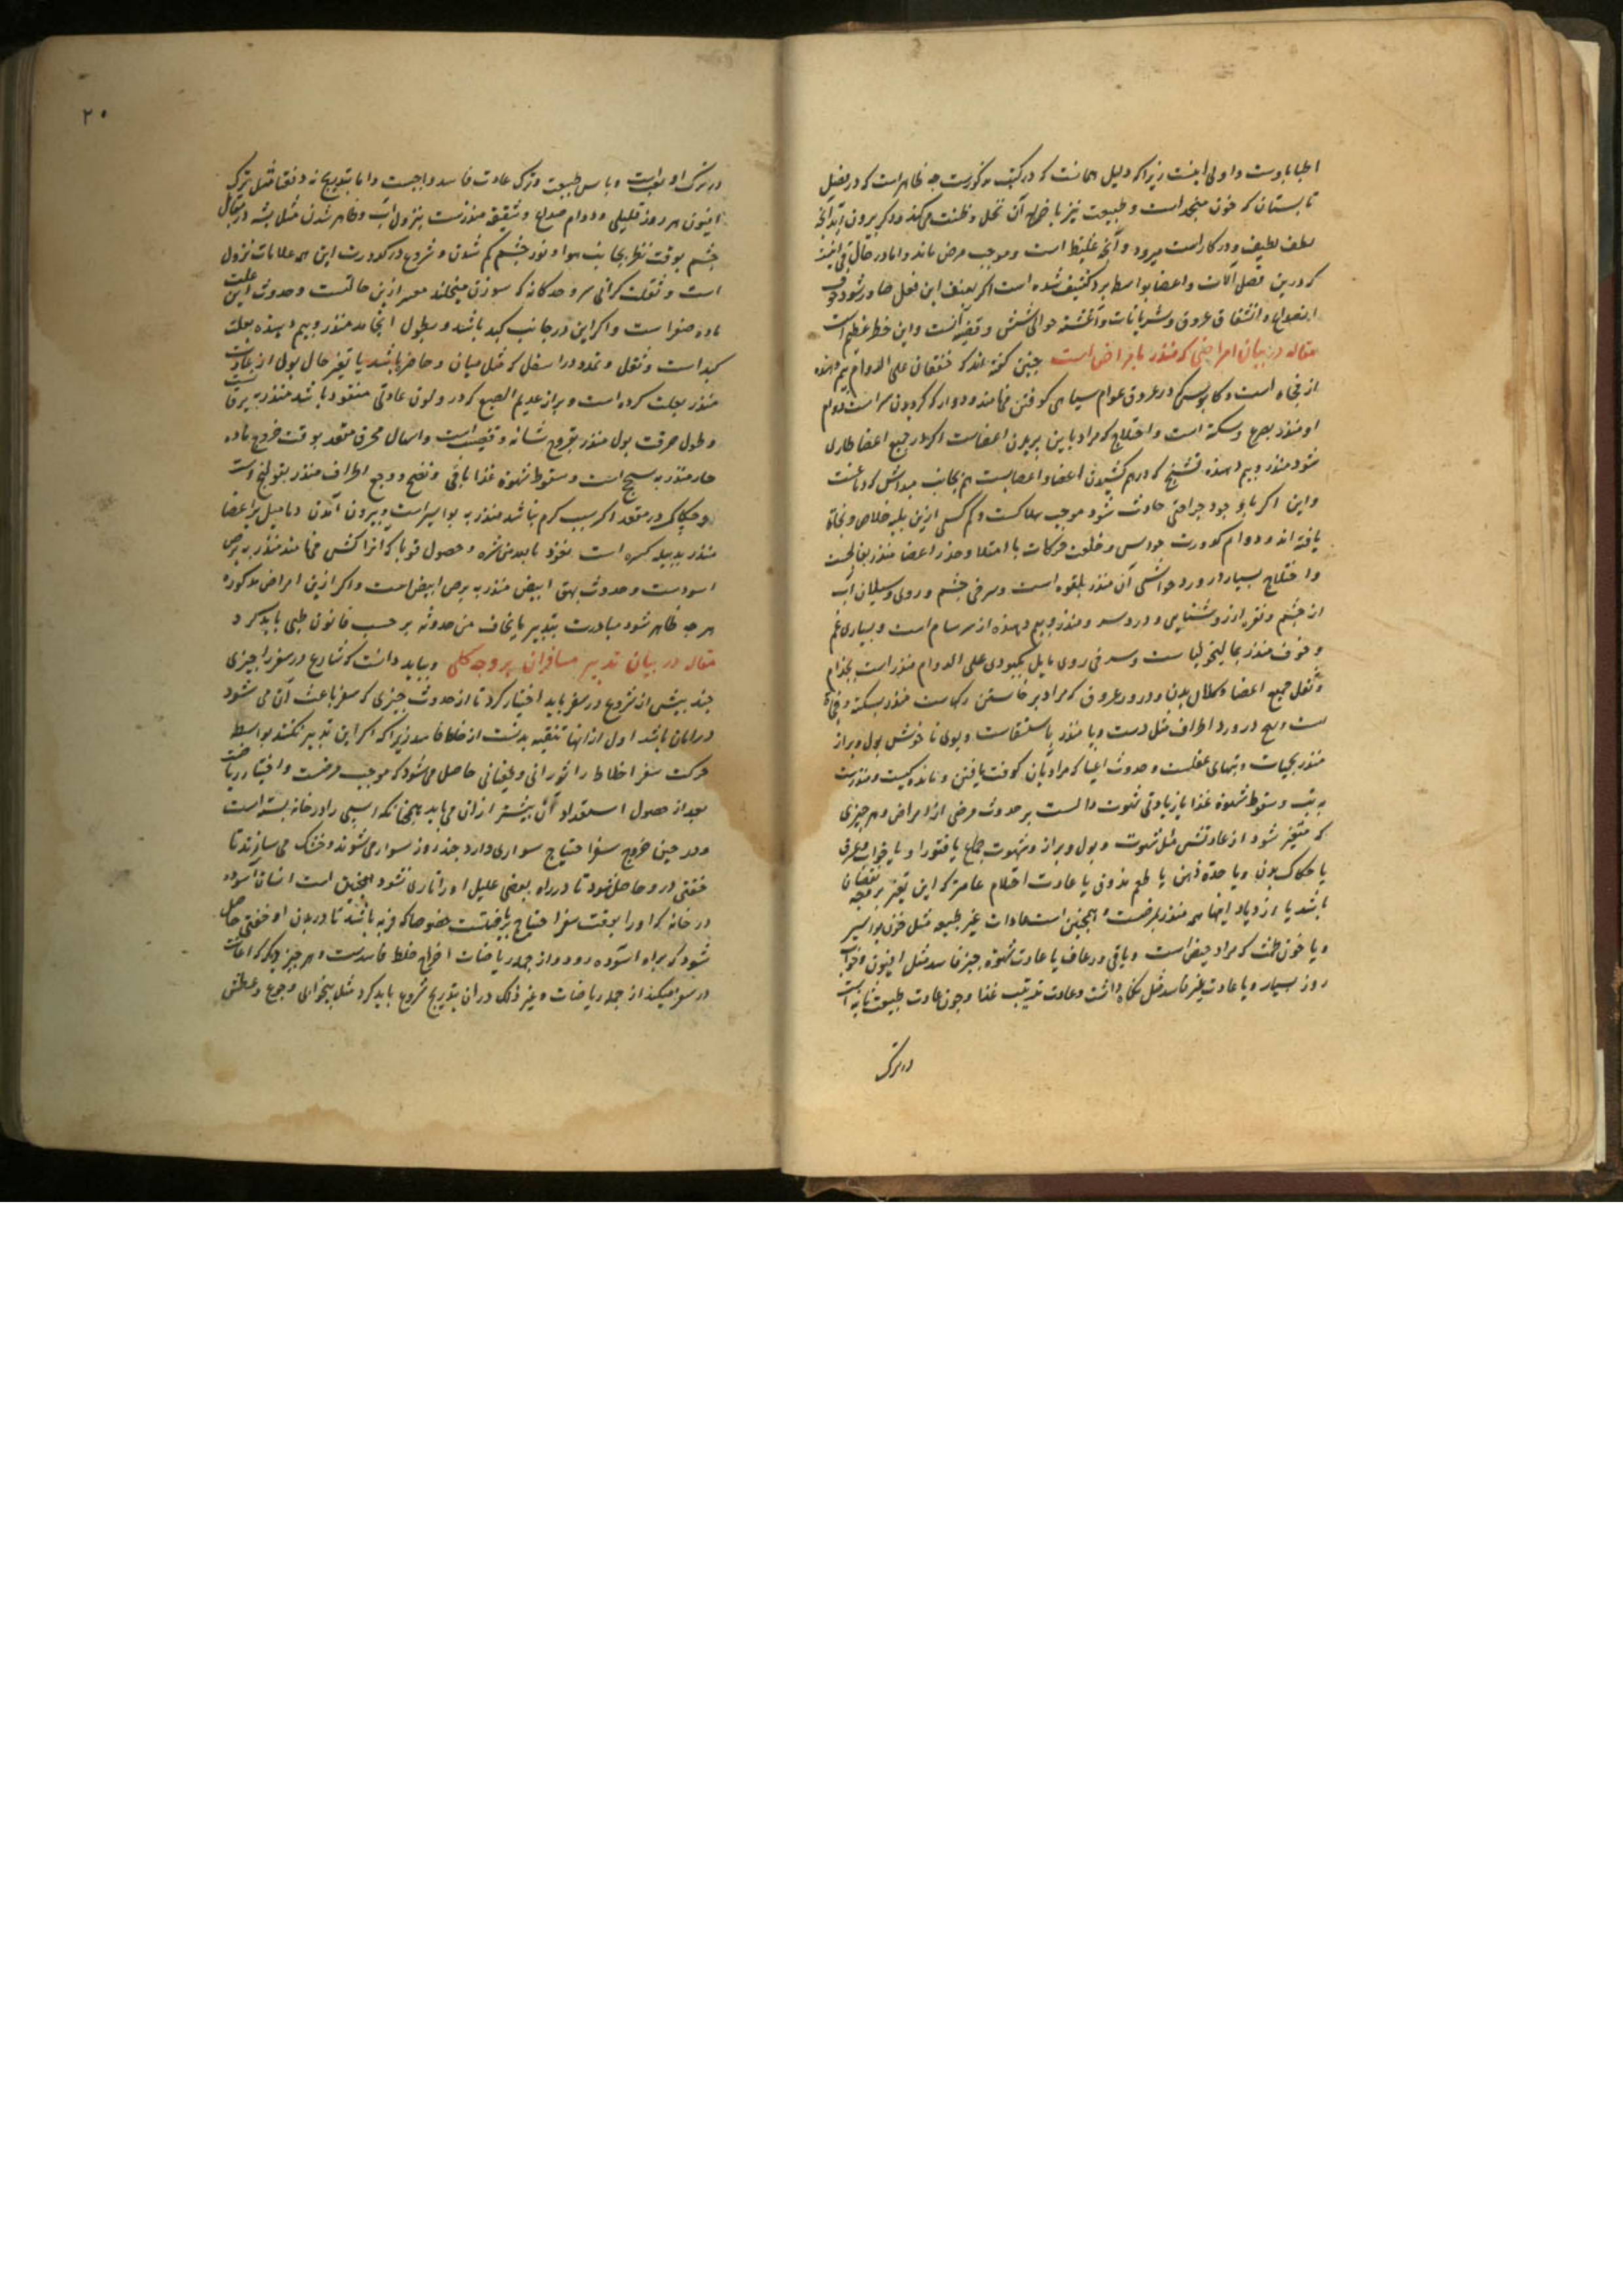 اطبا باوست و اولی اینست زیرا که دلیل همانست که در کتب مذکورست چه ظاهر است که در فصل
تابستان که خون منجمد است و طبیعت نیز با خراج آن تحلل و ظنت می کند و دیگر بیرون آید آنچه
لطف لطیف و در کار است میرود و آنچه غلیظ است و موجب مرض ماند و اما در حال قی نیز
که درین فصل آلات و اعضا بواسطه برد کثیف شده است اگر بعنف این فعل صادر شود خوف
انصداع و انشقاق عروق و شریانات و اغشیه حوالی شش و قصبه آنست و این خطر عظیم است
مقاله در بیان امراضی که منذر بامراض است چنین گفته اند که خفقان علی الدوام بیم دهنده
از فجاه است و کابوس که در عرف عوام سیاهی گرفتن خوانند و دوار که گردیدن سر است دوام
او منذر بصرع و سکته است و اختلاج که مراد باین پریدن اعضاست اگر در جمیع اعضا طاری
شود منذر و بیم دهنده تشنج که درهم کشیدن اعضا و اعصابست هم بجانب مبداش که دماغست
و این اگر با وجود جراحتی حادث شود موجب هلاکست و کم کسی ازین بلیه خلاص و نجاة
یافته اند و دوام کدورت حواس و خلعت حرکات با امتلا و خدر اعضا منذر بفالجست
و اختلاج بسیار در ورد حواشی آن منذر بلقوه است و سرخی چشم و روی و سیلان آب
از چشم و نفرت از روشنایی و درد سر و منذر و بیم دهنده از سرسام است و بسیاری غم
و خوف منذر بمالیخولیاست و سرخی روی مایل بکبودی علی الدوام منذر است بجذام
و ثقل جمیع اعضا و کلال بدن و درور عروق که مراد برخاستن رگهاست منذر بسکته و فجاة
ست و تهیج در ورد اطراف مثل دست و پا منذر باستسقاست و بوی ناخوش بول و براز
منذر بحمیات و تبهای عفنست و حدوث اعیا که مراد بآن کوفت یافتن و ماندگیست و منذرست
به تب و سقوط شهوة غذا یا زیادتی شهوت دالست بر حدوث مرضی از امراض و هر چیزی
که متغیر شود از عادتش مثل شهوت و بول و براز و شهوت جماع یا فتور او یا خواب و عرق
یا حکاک بدن و یا حدة ذهن یا طعم مذوق یا عادت احتلام عامتر که این تغیر بر وجه نقصان
باشد یا ازدیاد اینها همه منذر بمرضست و همچنین است عادات غیر طبیعه مثل خون بواسیر
و یا خون طمث که مراد حیض است و یا قی و رعاف یا عادت شهوة چیز فاسد مثل افیون و خواب
روز بسیار و یا عادت غیر فاسد مثل نگاه داشت و عادت ترتیب غذا و چون عادت طبیعت ثانیه است
در ترک
۲۰
در ترک او صوابست و پاس طبیعت و ترک عادت فاسد واجبست و اما بتدریج نه دفعتا مثل ترک
افیون هر روز قلیلی و دوام صداع و شقیقه منذرست بنزول آب و ظاهر شدن مثل پشه در پیش
چشم بوقت نظر بجانب هوا و نور چشم کم شدن و شروع در کدورت این همه علامات نزول
است و ثقلت گرانی سر و حدکانه که سوزن میخلند معبر ازین حالتست و حدوث این علت
ماده صفراست و اگر این در جانب کبد باشد و بطول انجامد منذر و بیم دهنده بعلت
کبد است و ثقل و تمدد در اسفل که مثل میان و خاصر باشد یا تغیر حال بول از عادت
منذر بعلت کرده است و براز عدیم الصبغ که در و لون عادتی مفقود باشد منذر به یرقانست
و طول حرقت بول منذر بقروح مثانه و قضیب است و اسهال محرق مقعد بوقت خروج ماده
حار منذر به سحج است و سقوط شهوة غذا با قی و نفخ و وجع اطراف منذر بقولنج است
و حکاک در مقعد اگر سبب کرم نباشد منذر به بواسیر است و بیرون آمدن دمامیل بر اعضا
منذر بدبیله کبیره است نعوذ بالله من شره و حصول قوبا که انرا گشی خوانند منذر به برص
اسودست و حدوث بهق ابیض منذر به برص ابیض است و اگر ازین امراض مذکوره
هر چه ظاهر شود مبادرت بتدبیر ما یخاف من حدوثه بر حسب قانون طبی باید کرد
مقاله در بیان تدبیر مسافران بر وجه کلی و بباید دانست که شارع در سفر را چیزی
چند پیش از شروع در سفر باید اختیار کرد تا از حدوث چیزی که سفر باعث آن می شود
در امان باشد اول از انها تنقیه بدنست از خلط فاسد زیرا که اگر این تدبیر نکنند بواسطه
حرکت سفر اخلاط را ثورانی و غلیانی حاصل می شود که موجب مرضست و اختیار ریاضت
بعد از حصول استعداد آن بیشتر از ان می باید همچنانکه اسپی را در خانه بسته است
و در حین خروج سفر احتیاج سواری دارد چند روز سوار می شوند و خشک می سازند تا
خفتی در و حاصل شود تا در راه بعضی علیل او را تاری نشود همچنین است انسان آسوده
در خانه که او را بوقت سفر احتیاج بریاضتست خصوصا که فربه باشد تا در بدن او خفتی حاصل
شود که براه آسوده رود و از جمله ریاضات اخراج خلط فاسدست و هر چیز دیگر که اعانت
در سفر میکند از جمله ریاضات و غیر ذلک در ان بتدریج شروع باید کرد مثل بیخوابی و جوع و عطش